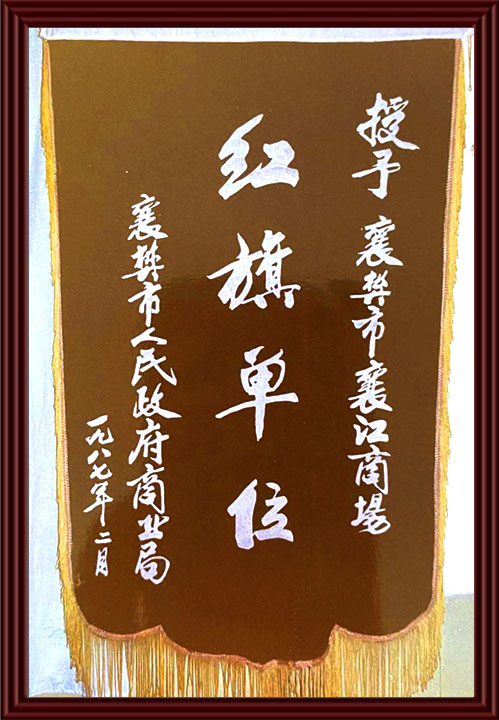 授予襄樊市襄江商場
红旗单位
襄樊市人民政府商业局
一九八七年二月